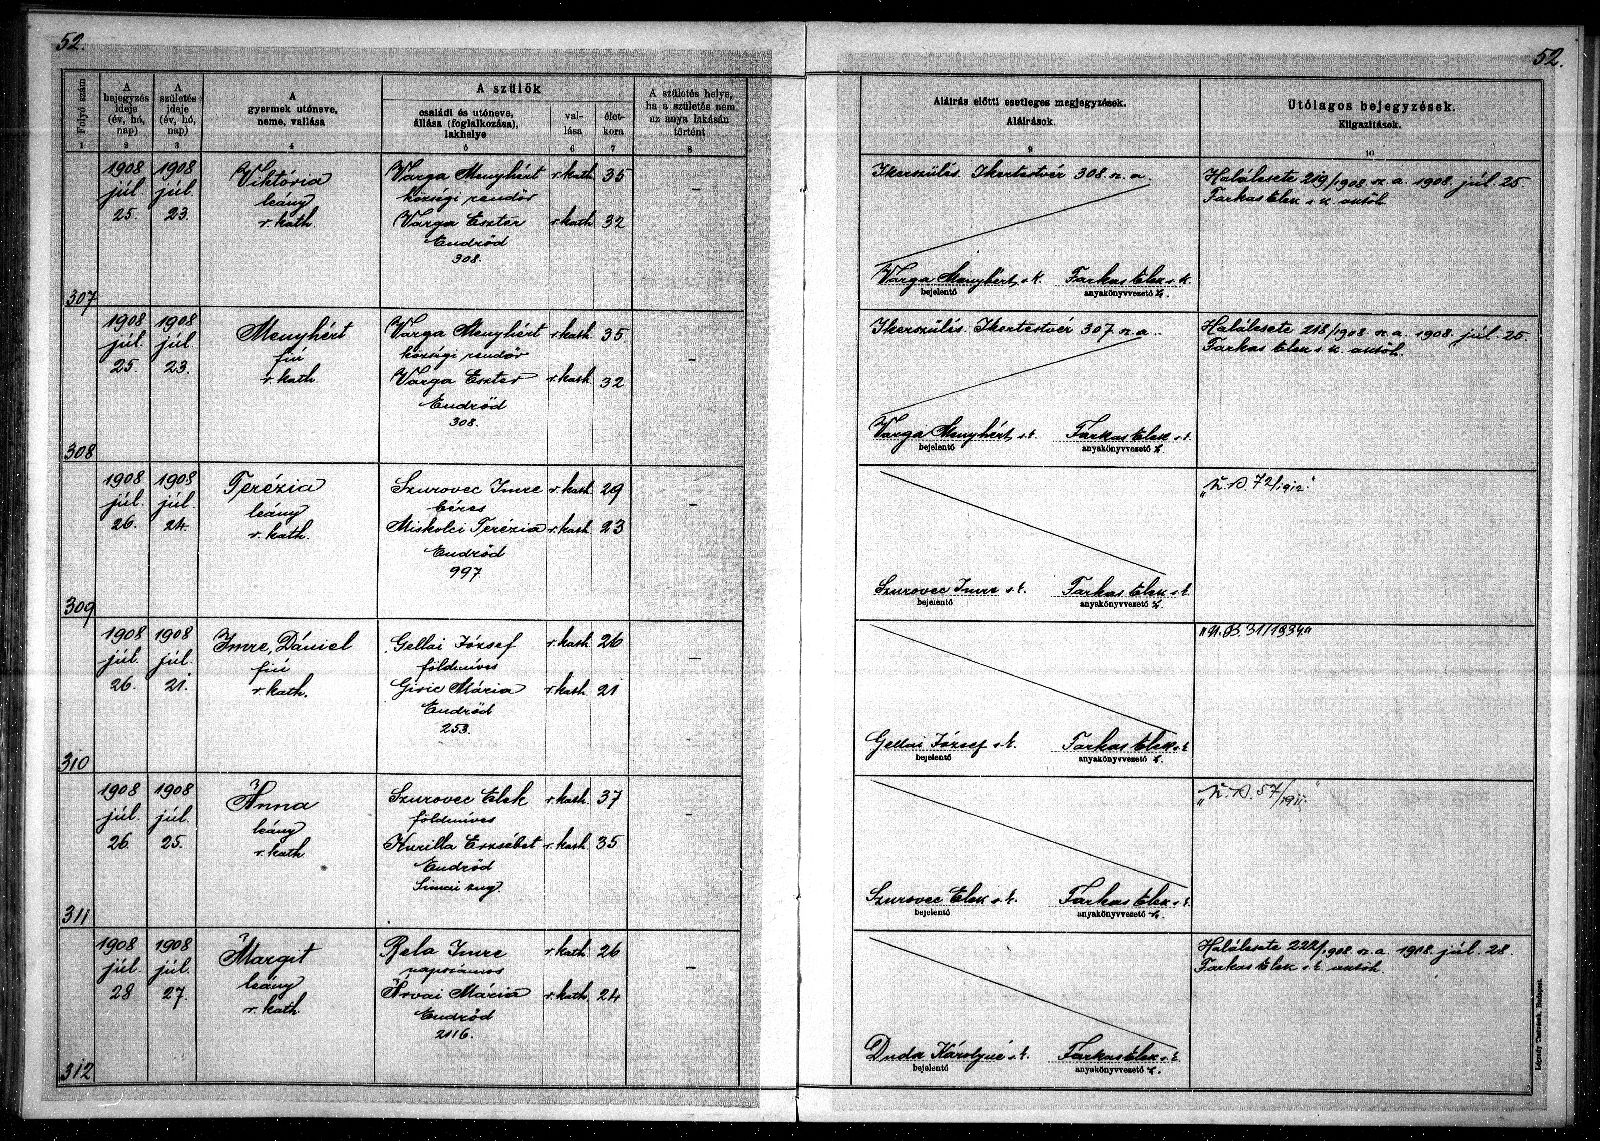 52.
Folyó szám
A bejegyzés ideje (év, hó, nap)
A születés ideje (év, hó, nap)
A gyermek utóneve, neme, vallása
A szülők
családi és utóneve, állása (foglalkozása), lakhelye
val-lása
élet-kora
A születés helye, ha a születés nem az anya lakásán történt
1 2 3 4 5 6 7 8
307
1908 júl. 25
1908 júl. 23.
Viktória
leány
r. kath
Varga Menyhért r. kath 35
községi rendőr
Varga Eszter r. kath 32
Endrőd
308.
308
1908 júl. 25
1908 júl 23.
Menyhért
fiú
r. kath
Varga Menyhért r. kath 35
községi rendőr
Varga Eszter r. kath 32
Endrőd
308.
309
1908 júl. 26.
1908 júl. 24.
Terézia
leány
r. kath.
Szurovec Imre r. kath 29
béres
Miskolci Terézia r. kath 23
Endrőd
997
310
1908 júl. 26.
1908 júl. 21.
Imre, Dániel
fiú
r. kath.
Gellai József r. kath 26
földmíves
Giric Mária r. kath 21
Endrőd
253.
311
1908 júl. 26
1908 júl. 25.
Anna
leány
r. kath
Szurovec Elek r. kath 37
földmíves
Kurilla Erzsébet r. kath 35
Endrőd
Simai zug
312
1908 júl. 28
1908 júl. 27.
Margit
leány
r. kath
Bela Imre r. kath 26
napszámos
Hrvai Mária r. kath 24
Endrőd
2116.
52.
Aláírás előtti esetleges megjegyzések.
Aláírások.
9
Utólagos bejegyzések.
Kiigazítások.
10
Ikerszülés. Ikertestvér 308 n. a.
Varga Menyhért s. k. Farkas Elek s. k.
bejelentő anyakönyvvezető
Haláleste 219/1908 sz. a. 1908 júl. 25.
Farkas Elek s. k.
Ikerszülés. Ikertestvér 307 n. a.
Varga Menyhért s. k. Farkas Elek s. k.
bejelentő anyakönyvvezető
Haláleste 218/1908 sz. a. 1908 júl. 25.
Farkas Elek s. k.
Szurovec Imre s. k. Farkas Elek s. k.
bejelentő anyakönyvvezető
72/1912
Gellai József s. k. Farkas Elek s. k.
bejelentő anyakönyvvezető
31/1934
Szurovec Elek s. k. Farkas Elek s. k.
bejelentő anyakönyvvezető
57/1911
Duda Károlyné s. k. Farkas Elek s. k.
bejelentő anyakönyvvezető
Haláleste 222/1908 sz. a. 1908. júl. 28.
Farkas Elek s. k.